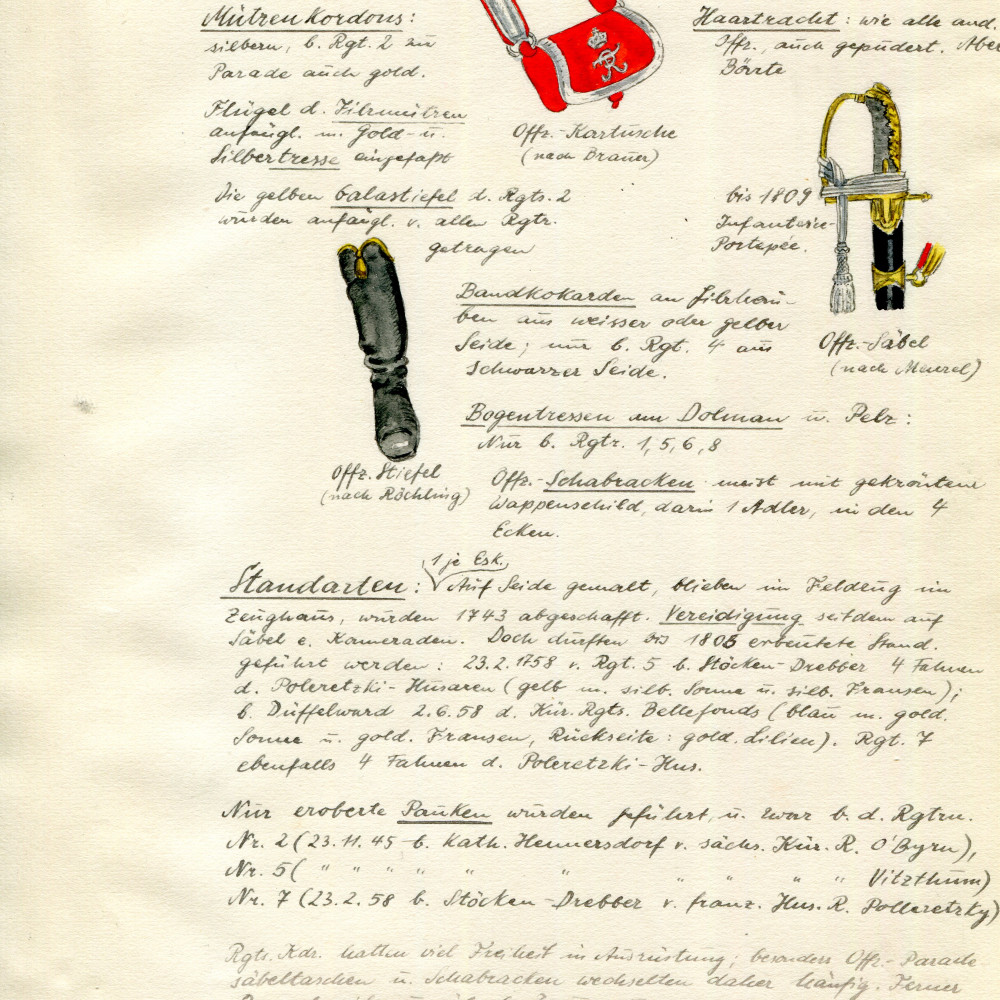 Mützenkordons:
silbern, b. Rgt. 2 zu
Parade auch gold.
Flügel d. Filzmützen
anfängl. m. Gold- u.
Silbertresse eingefaßt
Die gelben Galastiefel d. Rgts. 2
wurden anfängl. v. allen Rgtr.
getragen
Offz.-Kartusche
(nach Brauer)
Haartracht: wie alle and.
Offz., auch gepudert. Aber
Bärte
bis 1809
Infanterie-
Portepée.
Offz.-Säbel
(nach Menzel)
Offz. Stiefel
(nach Röchling)
Bandkokarden an Filzhau-
ben aus weisser oder gelber
Seide; nur b. Rgt. 4 aus
schwarzer Seide.
Bogentressen am Dolman u. Pelz:
Nur b. Rgtr. 1, 5, 6, 8
Offz.-Schabracken meist mit gekröntem
Wappenschild, darin 1 Adler, in den 4
Ecken.
1 je Esk.
Standarten: Auf Seide gemalt, blieben im Feldzug im
Zeughaus, wurden 1743 abgeschafft. Vereidigung seitdem auf
Säbel e. Kameraden. Doch durften bis 1806 erbeutete Stand.
geführt werden: 23.2.1758 v. Rgt. 5 b. Stöcken-Drebber 4 Fahnen
d. Poleretzki-Husaren (gelb m. silb. Sonne u. silb. Fransen);
b. Düffelward 2.6.58 d. Kür. Rgts. Bellefonds (blau m. gold.
Sonne u. gold. Fransen, Rückseite: gold. Lilien). Rgt. 7
ebenfalls 4 Fahnen d. Poleretzki-Hus.
Nur eroberte Pauken wurden geführt, u. zwar b. d. Rgtrn.
Nr. 2 (23.11.45 b. Kath. Hennersdorf v. sächs. Kür. R. O'Byrn),
Nr. 5 ( " " " " " " " " " " Vitzthum)
Nr. 7 (23.2.58 b. Stöcken-Drebber v. franz. Hus. R. Polleretzky)
Rgts. Kdr. hatten viel Freiheit in Ausrüstung; besonders Offz.-Parade
säbeltaschen u. Schabracken wechselten daher häufig. Ferner